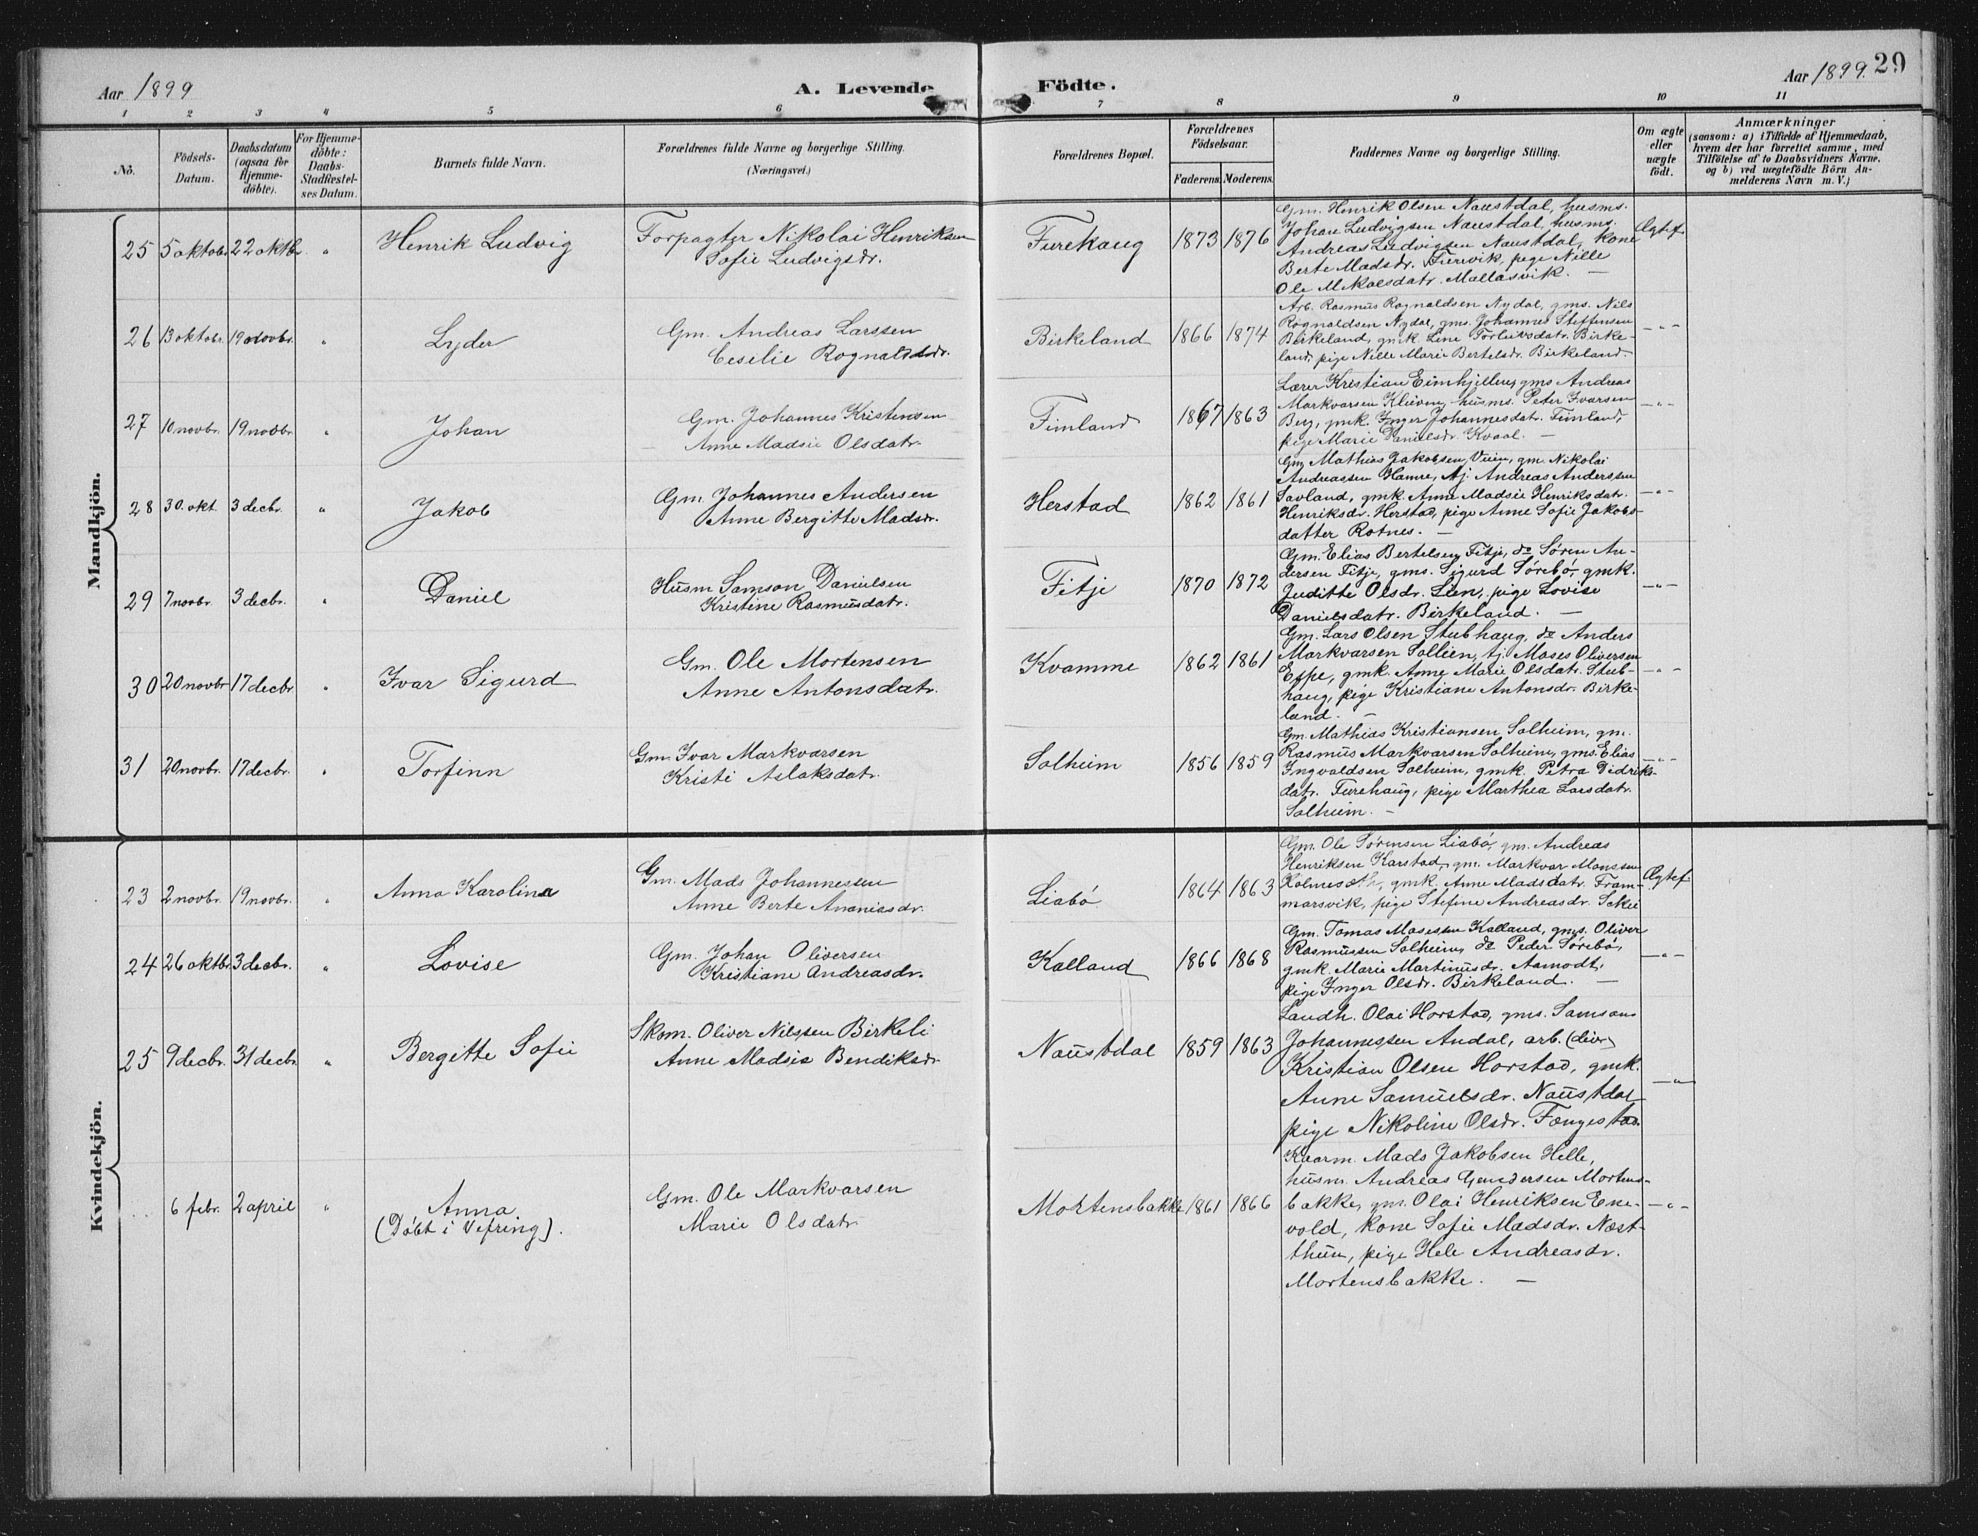 Aar 1899
A. Levende Födte.
Aar 1899. 29
1 2 3 4 5 6 7 8 9 10 11
No.
Födsels-
Datum.
Daabsdatum
(ogsaa for
Hjemme-
döbte).
For Hjemme-
döbte:
Daabs-
Stadfæstel-
ses Datum.
Barnets fulde Navn.
Forældrenes fulde Navne og borgerlige Stilling.
(Næringsvei.)
Forældrenes Bopæl.
Forældrenes
Födselsaar.
Faderens. Moderens.
Faddernes Navne og borgerlige Stilling.
Om ægte
eller
uægte
födt.
Anmærkninger
(saasom: a) i Tilfælde af Hjemmedaab,
hvem der har forrettet samme, med
Tilföielse af to Daabsvidners Navne.
og b) ved uægtefödte Börn An-
melderens Navn m. V.)
Mandkjön.
25 5 oktobr. 22 oktbr. " Henrik Ludvig
Forpagter Nikolai Henriksen
Sofie Ludvigsdr.
Furehaug 1873 1876
Gm. Henrik Olsen Naustdal, husms.
Johan Ludvigsen Naustdal, husms.
Andreas Ludvigsen Naustdal, kone
Berte Madsdr. Furevik, pige Nille
Ole Mikalsdatr. Mallasvik. —
Ægtef
26 13 oktobr. 19 novbr. " Lyder
Gm. Andreas Larssen
Ceselie Rognaldsdr.
Birkeland 1866 1874
Arb. Rasmus Rognaldsen Nydal, gms. Nils
Rognaldsen Nydal, gms. Johannes Steffensen
Birkeland, gmk. Line Torleivsdatr. Birke-
land, pige Nille Marie Bertelsdr. Birkeland.
—"—
27 10 novbr. 19 novbr. " Johan
Gm. Johannes Kristensen
Anne Madsie Olsdatr.
Fimland 1867 1863
Lærer Kristian Eimhjellen, gms. Andreas
Markvarsen Kleiven, husms. Peter Ivarsen
Berg, gmk. Inger Johannesdatr. Fimland,
pige Marie Danielsdr. Kvaal. —
—"—
28 30. okt. 3 decbr. " Jakob
Gm. Johannes Andersen
Anne Bergitte Madsdr.
Herstad 1862 1861
Gm. Mathias Jakobsen Vien, gm. Nikolai
Andreassen Hamre, tj. Andreas Anderssen
Savland, gmk. Anne Madsie Henriksdatr.
Henriksdr. Herstad, pige Anne Sofie Jakobs-
datter Rotnes. —
—"—
29 7 novbr. 3 decbr. " Daniel
Husm Samson Danielsen
Kristine Rasmusdatr.
Fitje 1870 1872
Gm. Elias Bertelsen Fitje, do Søren An-
dersen Fitje, gms. Sigurd Sørebø, gmk.
Juditte Olsdr. Lien, pige Lovise
Danielsdatr. Birkeland. —
—"—
30 20 novbr 17 decbr. " Ivar Sigurd
Gm. Ole Mortensen
Anne Antonsdatr.
Kvamme 1862 1861
Gm. Lars Olsen Stubhaug, do Anders
Markvarsen Sollien, tj. Moses Oliversen
Espe, gmk. Anne Marie Olsdatr. Stub-
haug, pige Kristiane Antonsdr. Birke-
land. —
—"—
31 20 novbr. 17 decbr. " Torfinn
Gm. Ivar Markvarsen
Kristi Aslaksdatr.
Solheim 1856 1859
Gm. Mathias Kristiansen Solheim, gm.
Rasmus Markvarsen Solheim, gms. Elias
Ingvaldsen Solheim, gmk. Petra Didriks-
datr. Furehaug, pige Marthea Larsdatr.
Solheim. —
—"—
Kvindekjön.
23 2 novbr. 19 novbr. " Anna Karolina
Gm. Mads Johannessen
Anne Berte Ananiasdr.
Liabø 1864 1863
Gm. Ole Sørensen Liabø, gm. Andreas
Henriksen Karstad, gm. Markvar Monssen
gmk. Anne Madsdatr. Fram-
marsvik, pige Stefine Andreasdr.
Ægtef
24 26 oktbr. 3 decbr. " Lovise
Gm. Johan Oliversen
Kristiane Andreasdr.
Kalland 1866 1868
Gm. Tomas Mosessen Kalland, gms. Oliver
Rasmussen Solheim, do Peder Sørebø,
gmk. Marie Martinusdr. Aamodt,
pige Inger Olsdr. Birkeland. —
—"—
25 9 decbr. 31 decbr. " Bergitte Sofie
Skom. Oliver Nilssen Birkeli
Anne Madsie Bendiksdr
Naustdal 1859 1863
Landh. Olai Horstad, gms. Samson
Johannessen Andal, arb.
Kristian Olsen Horstad, gmk.
Anne Samuelsdr. Naustdal
pige Nikoline Olsdr. Fængestad
—"—
6 febr. 2 april " Anna
(Døbt i Vefring).
Gm. Ole Markvarsen
Marie Olsdatr
Mortensbakke 1861 1866
Kaarm. Mads Jakobsen Helle,
husm. Andreas Gundersen Mortens-
bakke, gm. Olai Henriksen Ene-
vold, kone Sofie Madsdr. Næst-
thun, pige Hele Andreasdr.
Mortensbakke. —
—"—